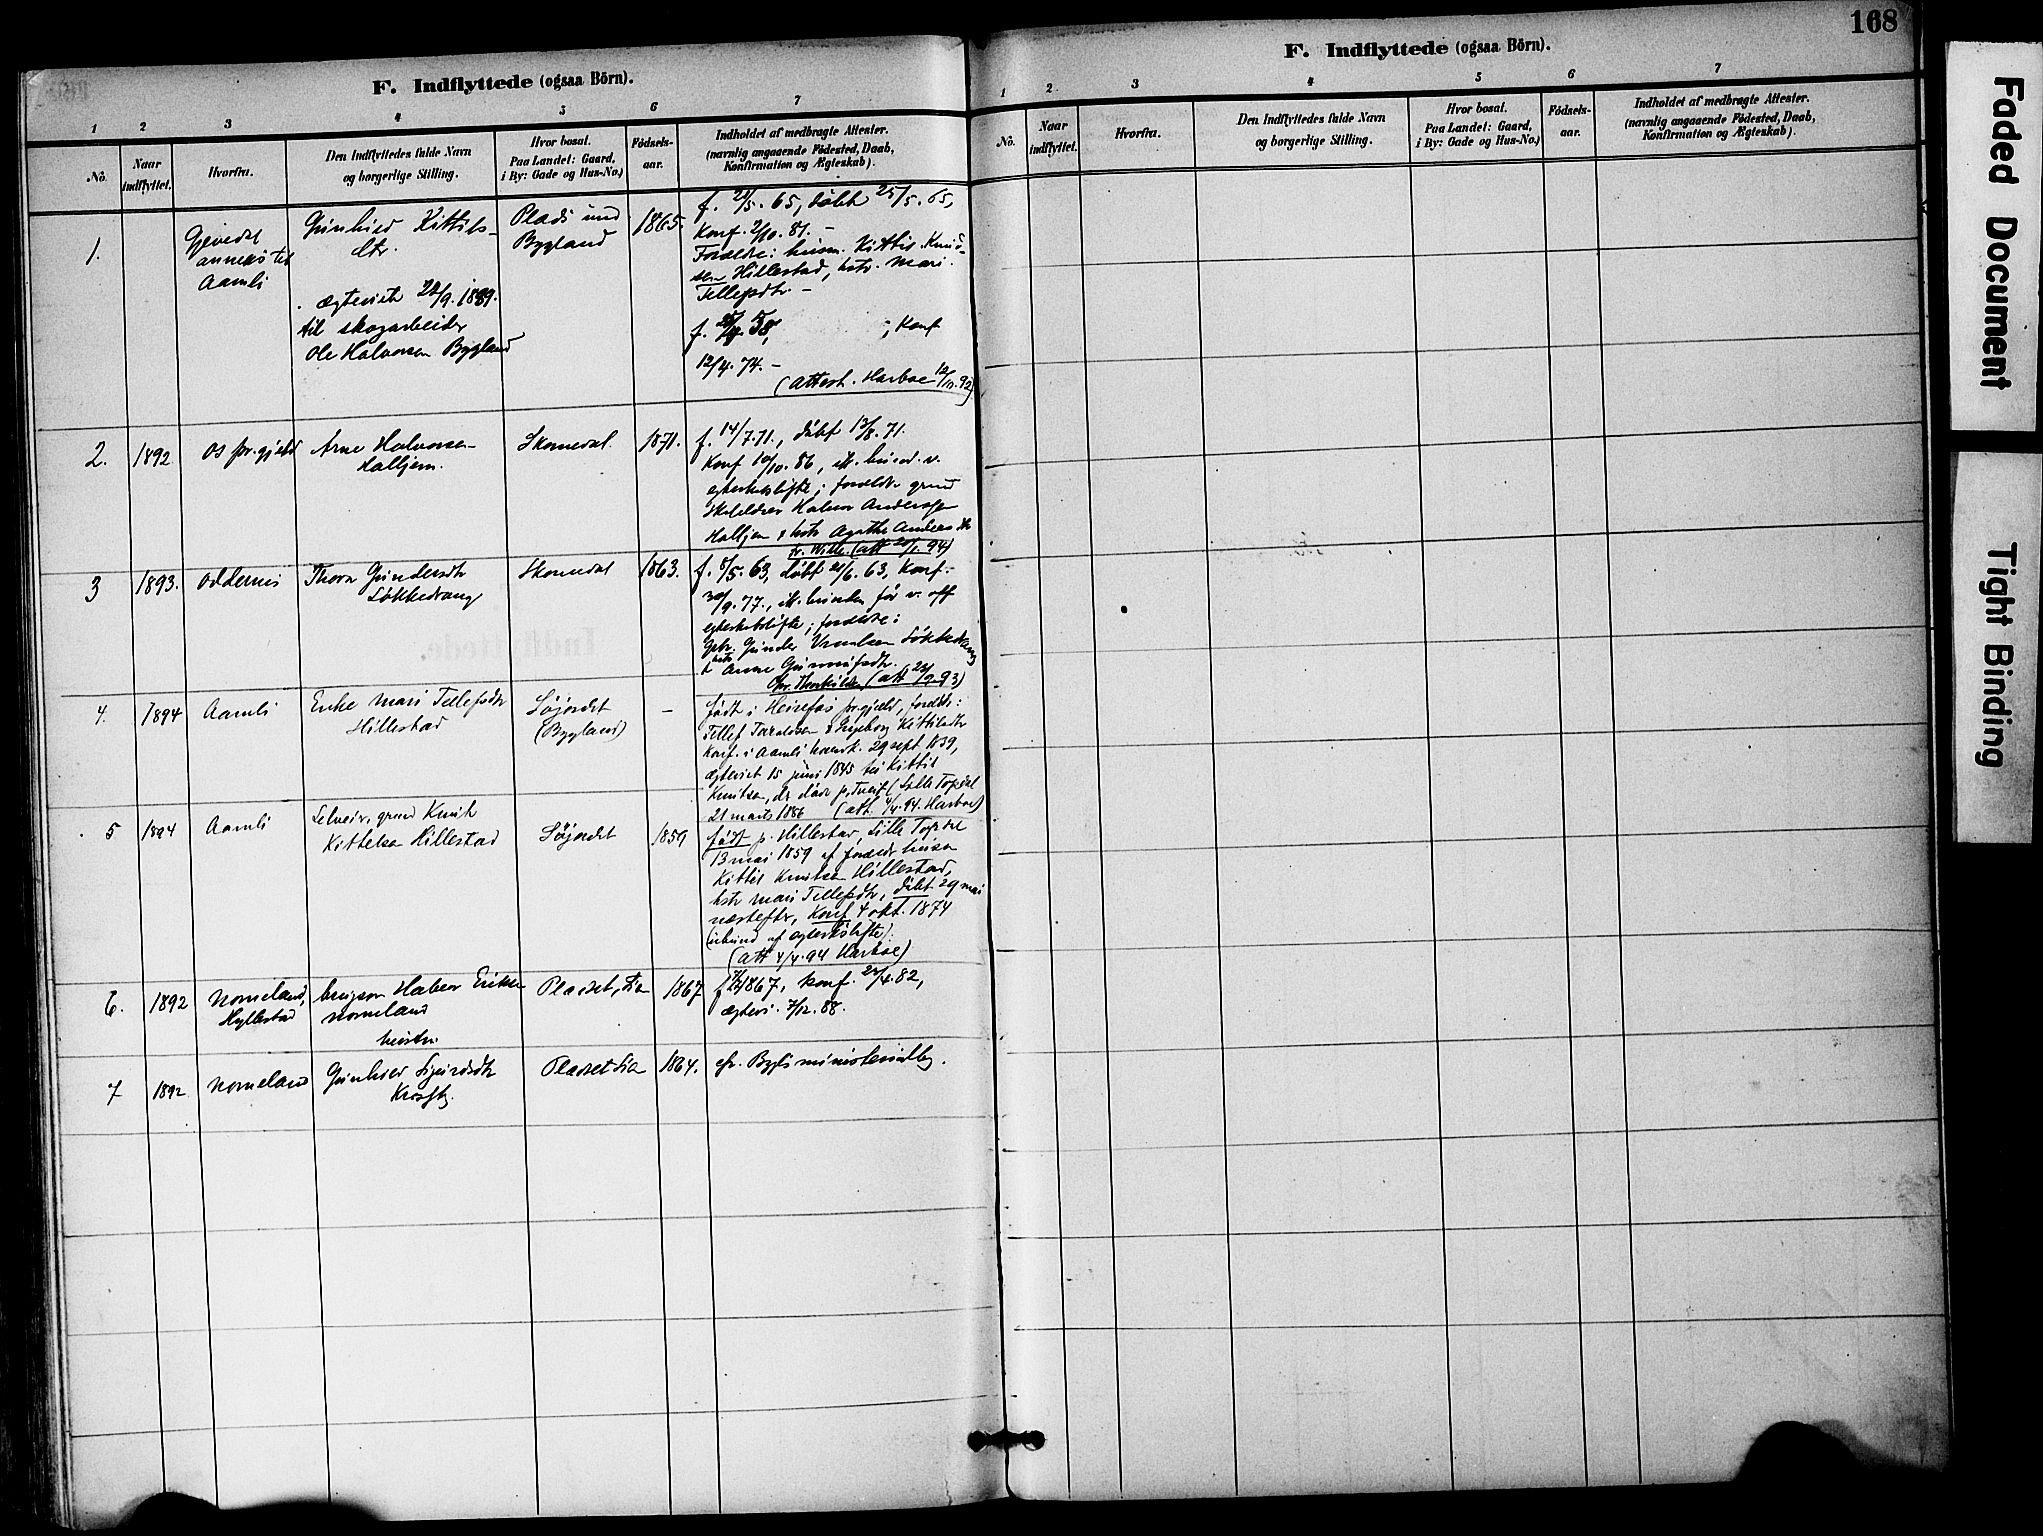 F. Indflyttede (ogsaa Börn).
1 2 3 4 5 6 7
No.
Naar indflyttet.
Hvorfra.
Den Indflyttedes fulde Navn
og borgerlige Stilling.
Hvor bosat.
Paa Landet: Gaard,
i By: Gade og Hus-No.)
Födsels-
aar.
Indholdet af medbragte Attester.
(navnlig angaaende Födested, Daab,
Konfirmation og Ægteskab).
1.
Gjevedal
anneks til
Aamli
Gunhild Kittils-
dtr.
ægteviet 28/9. 1889.
til skogarbeider
Ole Halvorsen Bygland
Plads und
Bygland
1865.
f. 2/5. 65, döbt 25/5. 65,
Konf. 2/10. 81. –
Forældre: husm. Kittil Knud-
sen Hillestad, hstr. Mari
Tellefsdtr. –
58, ; Konf
12/4. 74. –
(Attest. Harboe 12/10. 92)
2.
1892
Os pr.gjeld
Arne Halvorsen
Halljem.
Skomedal
1871.
f. 14/7. 71., döbt 13/8. 71.
Konf 10/10. 86,
forældr. grund
Halvor Andersen
Halljem & hstr Agathe Andersdtr
(att 20/1. 94)
3
1893.
Oddernes
Thora Gundersdtr
Løkkedrang
Skomedal
1863.
f. 8/5. 63, döbt 21/6. 63, Konf.
30/9. 77., för v. off
forældre:
Gunder Løkkedrang
& hstr Anne
(att 23/9. 93)
4.
1894
Aamli
Enke Mari Tellefsdtr
Hillestad
Löjordet
(Bygland)
–
født i Heirefos pr.gjeld, foreldr:
Tellef Taraldsen & Ingeborg Kittilsdtr
Konf. i Aamli hovedk. 29 sept 1839,
ægteviet 15 juni 1845 til Kittil
Knutsen, der døde p. Tveit (Lille Topdal
21 marts 1886 (att. 4/4. 94. Harboe)
5
1894
Aamli
Selveier, grund Knut
Kittelsen Hillestad
Löjordet
1859
født p. Hillestad, Lille Topdal
13 mai 1859 af forældr husm
Kittel Knutsen Hillestad,
hstr Mari Tellefsdtr, döbt 29 mai
næstefter, Konf 4 okt. 1874
(ubund af egteskslöfte).
(att 4/4. 94 Harboe)
6.
1892
Nomeland,
Hyllestad
brugsm Halvor Eriksen
Nomeland
hustru
Pladset, Lia
1867
1867, konf. 23/4. 82,
ægtevi. 7/12. 88.
7
1892
Nomeland
Gunhild Sigurdsdtr
Pladset Lia
1864.
cfr. Bygls ministerialbog.
168
F. Indflyttede (ogsaa Börn).
1 2 3 4 5 6 7
No.
Naar
indflyttet.
Hvorfra.
Den Indflyttedes fulde Navn
og borgerlige Stilling.
Hvor bosat.
Paa Landet: Gaard,
i By: Gade og Hus-No.)
Födsels-
aar.
Indholdet af medbragte Attester.
(navnlig angaaende Födested, Daab,
Konfirmation og Ægteskab).
Faded Document
Tight Binding